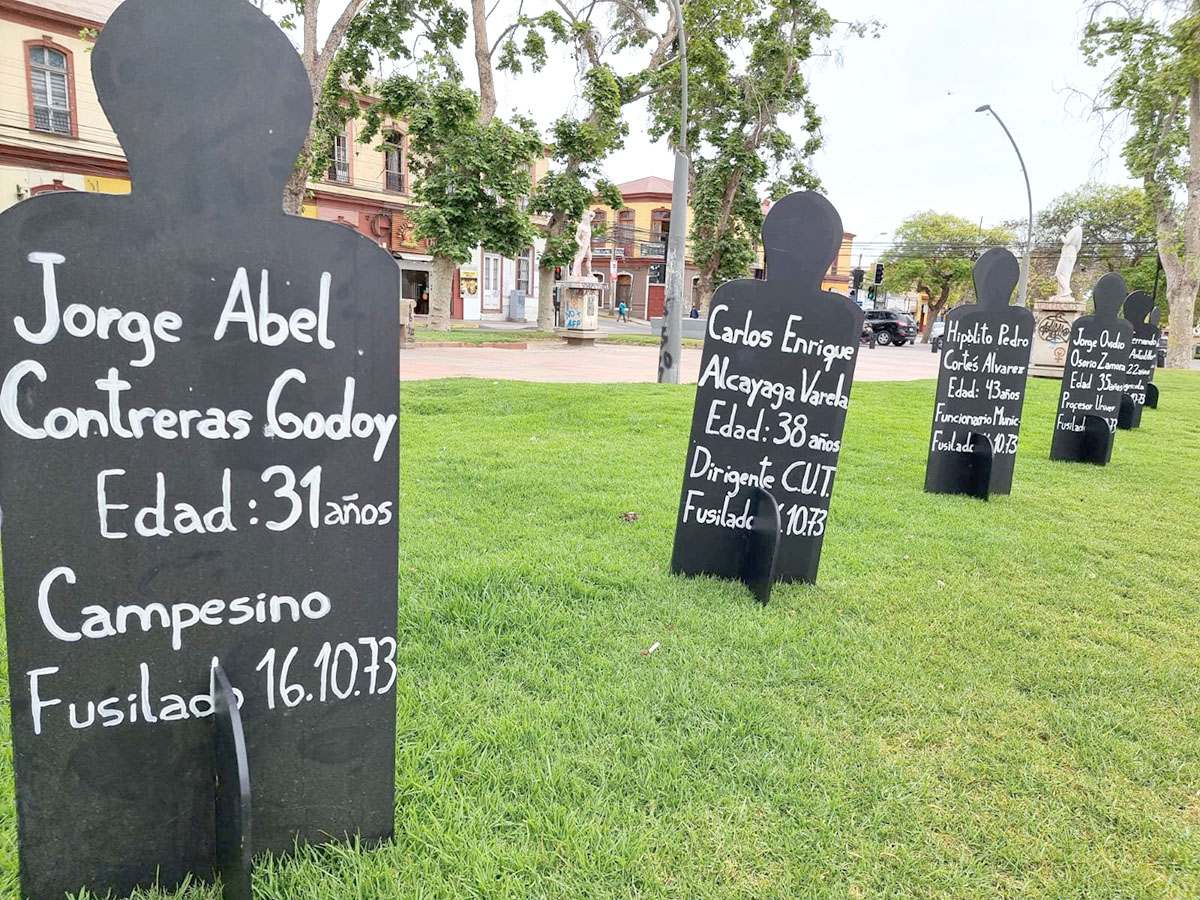 Jorge Abel
Contreras Godoy
Edad: 31 años
Campesino
Fusilado 16.10.73
Carlos Enrique
Alcayaga Varela
Edad: 38 años
Dirigente C.U.T.
Fusilado 10.73
Hipólito Pedro
Cortés Alvarez
Edad: 43 años
Funcionario Munic-
Fusilado 10.73
Jorge Ovidio
Osorio Zamora
Edad 35 años
Profesor Univer
Fusilado
22 años
NO +
AFP